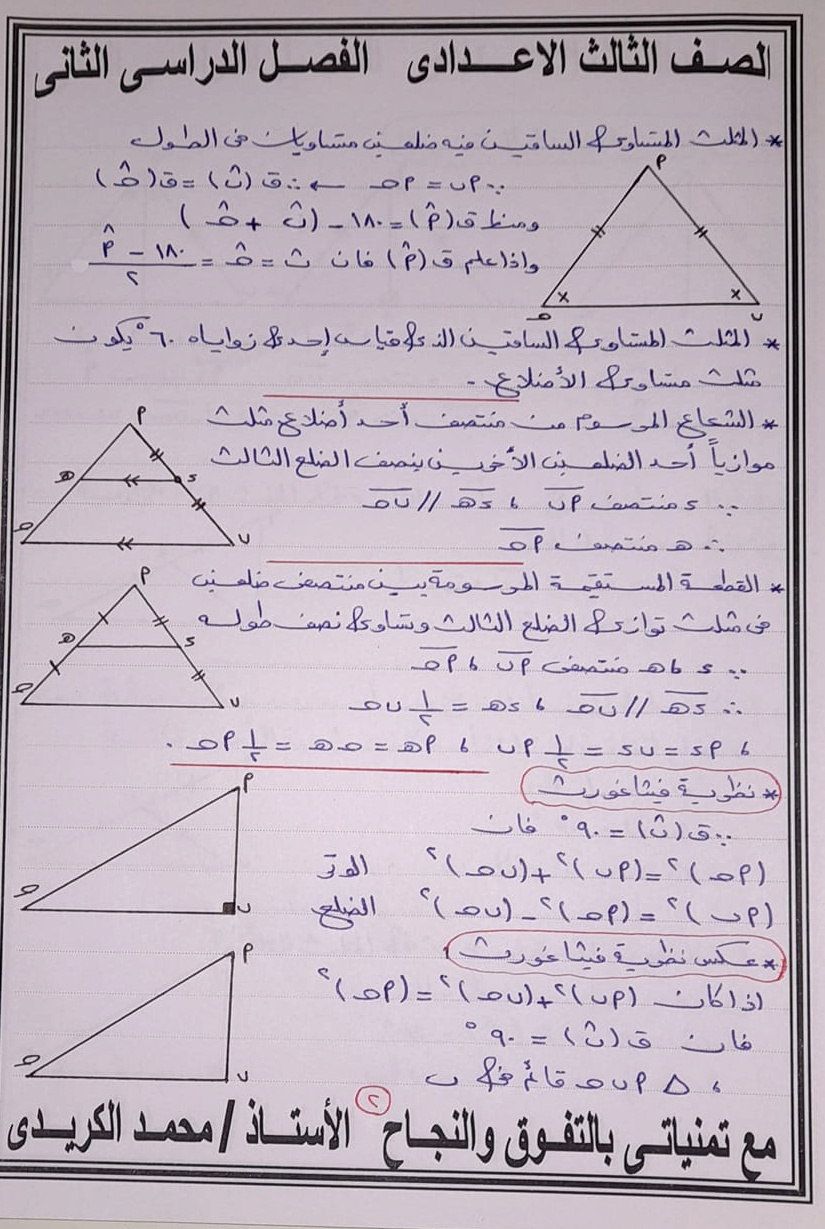 الصف الثالث الاعدادى الفصل الدراسى الثانى
* المثلث المتساوى الساقين فيه ضلعين متساويان فى الطول
∵ ٩ب = ٩حـ ← ∴ ق(بˆ) = ق(حـˆ)
ومنها ق(٩ˆ) = ١٨٠ - (بˆ + حـˆ)
واذا علم ق(٩ˆ) فان بˆ = حـˆ = (١٨٠ - ٩ˆ)/٢
٩
حـ
ب
* المثلث المتساوى الساقين الذى قياس إحدى زواياه ٦٠° يكون
مثلث متساوى الأضلاع.
* الشعاع المرسوم من منتصف أحد أضلاع مثلث
موازياً أحد الضلعين الأخرين ينصف الضلع الثالث
∵ ء منتصف ٩ب ، ءهـ // بحـ
∴ هـ منتصف ٩حـ
٩
هـ
ء
حـ
ب
* القطعة المستقيمة المرسومة بين منتصفى ضلعين
فى مثلث توازى الضلع الثالث وتساوى نصف طوله
∵ ء ، هـ منتصفى ٩ب ، ٩حـ
∴ ءهـ // بحـ ، ءهـ = ١/٢ بحـ
، ٩ء = بء = ١/٢ ٩ب ، ٩هـ = حـهـ = ١/٢ ٩حـ .
٩
هـ
ء
حـ
ب
* نظرية فيثاغورث
∵ ق(بˆ) = ٩٠° فان
(٩حـ)٢ = (٩ب)٢ + (بحـ)٢ الوتر
(٩ب)٢ = (٩حـ)٢ - (بحـ)٢ الضلع
٩
حـ
ب
* عكس نظرية فيثاغورث
اذا كان (٩ب)٢ + (بحـ)٢ = (٩حـ)٢
فان ق(بˆ) = ٩٠°
، Δ ٩بحـ قائم فى ب
٩
حـ
ب
٢
مع تمنياتى بالتفوق والنجاح الأستاذ / محمد الكريدى